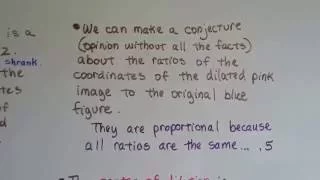 is a
2.
shrank.
the
ates
of
d
• We can make a conjecture
(opinion without all the facts)
about the ratios of the
coordinates of the dilated pink
image to the original blue
figure.
They are proportional because
all ratios are the same... .5